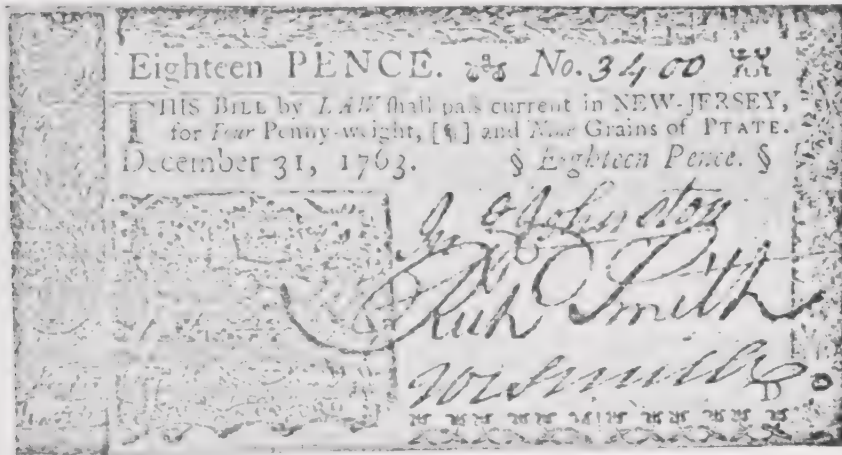 Eighteen PENCE. No. 3400
THIS BILL by LAW shall pass current in NEW-JERSEY,
for Four Penny-weight, [¶] and Nine Grains of PLATE.
December 31, 1763. § Eighteen Pence. §
Johnston
Rich Smith
W Smith
D